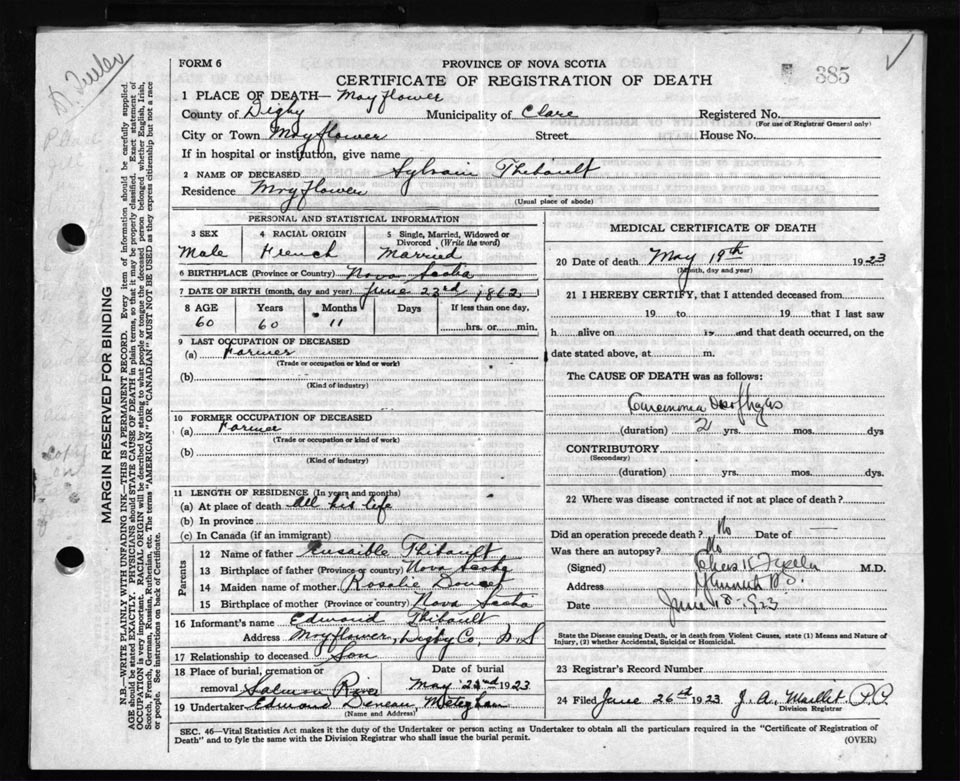 FORM 6
PROVINCE OF NOVA SCOTIA
CERTIFICATE OF REGISTRATION OF DEATH
385
1 PLACE OF DEATH— Mayflower
County of Digby Municipality of Clare Registered No.
(For use of Registrar General only)
City or Town Mayflower Street House No.
If in hospital or institution, give name
2 NAME OF DECEASED Sylvain Thibault
Residence Mayflower
(Usual place of abode)
PERSONAL AND STATISTICAL INFORMATION
3 SEX 4 RACIAL ORIGIN 5 Single, Married, Widowed or Divorced (Write the word)
Male French Married
6 BIRTHPLACE (Province or Country) Nova Scotia
7 DATE OF BIRTH (month, day and year) June 23rd, 1862
8 AGE Years Months Days If less than one day,
60 60 11 hrs. or min.
9 LAST OCCUPATION OF DECEASED
(a) Farmer
(Trade or occupation or kind of work)
(b)
(Kind of industry)
10 FORMER OCCUPATION OF DECEASED
(a) Farmer
(Trade or occupation or kind of work)
(b)
(Kind of industry)
11 LENGTH OF RESIDENCE (In years and months)
(a) At place of death all his life
(b) In province
(c) In Canada (if an immigrant)
Parents
12 Name of father Thibault
13 Birthplace of father (Province or country) Nova Scotia
14 Maiden name of mother Rosalie Doucet
15 Birthplace of mother (Province or country) Nova Scotia
16 Informant's name Edward Thibault
Address Mayflower, Digby Co, N.S
17 Relationship to deceased Son
18 Place of burial, cremation or removal Salmon River
Date of burial May 22nd 1923
19 Undertaker Edward Meteghan
(Name and Address)
MEDICAL CERTIFICATE OF DEATH
20 Date of death May 19th 1923
(Month, day and year)
21 I HEREBY CERTIFY, that I attended deceased from
19 to 19 that I last saw
h alive on 19 and that death occurred, on the
date stated above, at m.
The CAUSE OF DEATH was as follows:
(duration) 2 yrs. mos. dys
CONTRIBUTORY
(Secondary)
(duration) yrs. mos. dys.
22 Where was disease contracted if not at place of death?
Did an operation precede death? No Date of
Was there an autopsy? No
(Signed) M.D.
Address
Date June 18-1923
State the Disease causing Death, or in death from Violent Causes, state (1) Means and Nature of
Injury, (2) whether Accidental, Suicidal or Homicidal.
23 Registrar's Record Number
24 Filed June 26th 1923 J. A. Maillet. P.C.
Division Registrar
SEC. 46—Vital Statistics Act makes it the duty of the Undertaker or person acting as Undertaker to obtain all the particulars required in the "Certificate of Registration of
Death" and to fyle the same with the Division Registrar who shall issue the burial permit.
(OVER)
MARGIN RESERVED FOR BINDING
N.B.—WRITE PLAINLY WITH UNFADING INK—THIS IS A PERMANENT RECORD. Every item of information should be carefully supplied.
AGE should be stated EXACTLY. PHYSICIANS should STATE CAUSE OF DEATH in plain terms, so that it may be properly classified. Exact statement of
OCCUPATION is very important. RACIAL ORIGIN will be described by stating to what people or tongue the deceased person belonged whether English, Irish,
Scotch, French, German, Russian, Ruthenian, etc. The terms "AMERICAN" OR "CANADIAN" MUST NOT BE USED as they express citizenship but not a race
or people. See instructions on back of Certificate.